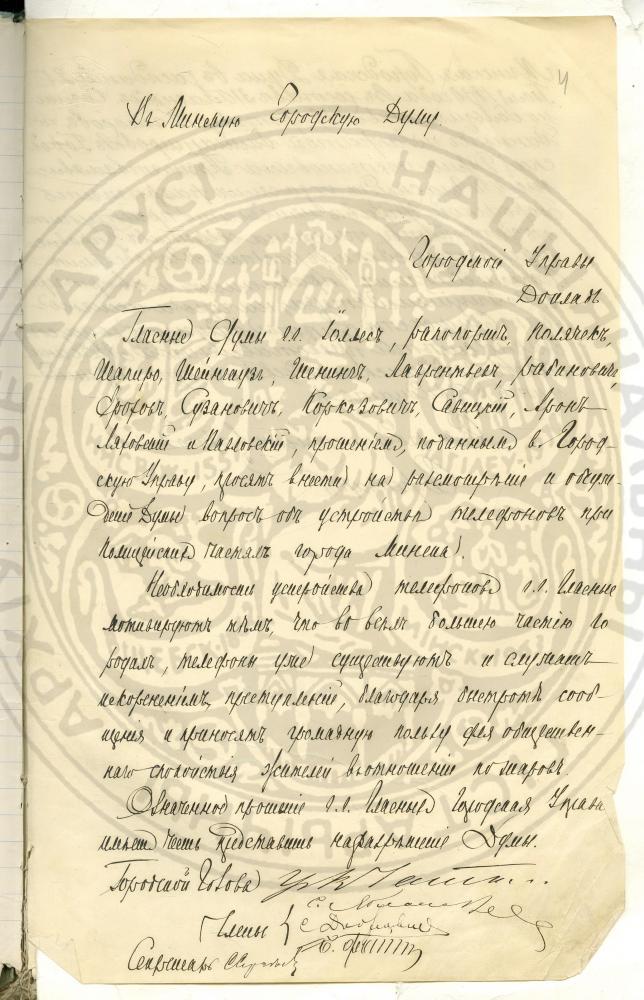 4
Въ Минскую Городскую Думу.
Городской Управы
Докладъ
Гласные Думы г.г. Гольдесъ, Рапопортъ, Полячекъ,
Шапиро, Шейнгаузъ, Шенинъ, Лаврентьевъ, Рабиновичъ,
Фроловъ, Сузановичъ, Коркозовичъ, Савицкій, Аронъ
Ляховскій и Павловскій, прошеніемъ, поданнымъ въ Город-
скую Управу, просятъ внести на разсмотрѣніе и обсуж-
деніе Думы вопросъ объ устройствѣ телефоновъ при
Полицейскихъ частяхъ города Минска.
Необходимость устройства телефоновъ г.г. Гласные
мотивируютъ тѣмъ, что во всѣхъ большею частію го
родахъ, телефоны уже существуютъ и служатъ
искорененіемъ преступленій, благодаря быстротѣ сооб-
щенія и приносятъ громадную пользу для обществен-
наго спокойствія жителей въ отношеніи пожаровъ.
Означенное прошеніе г.г. Гласныхъ Городская Управа
имѣетъ честь представить на разрѣшеніе Думы.
Городской Голова
Члены
Секретарь
НАЦЫЯНАЛЬНЫ
АРХІЎ
БЕЛАРУСІ